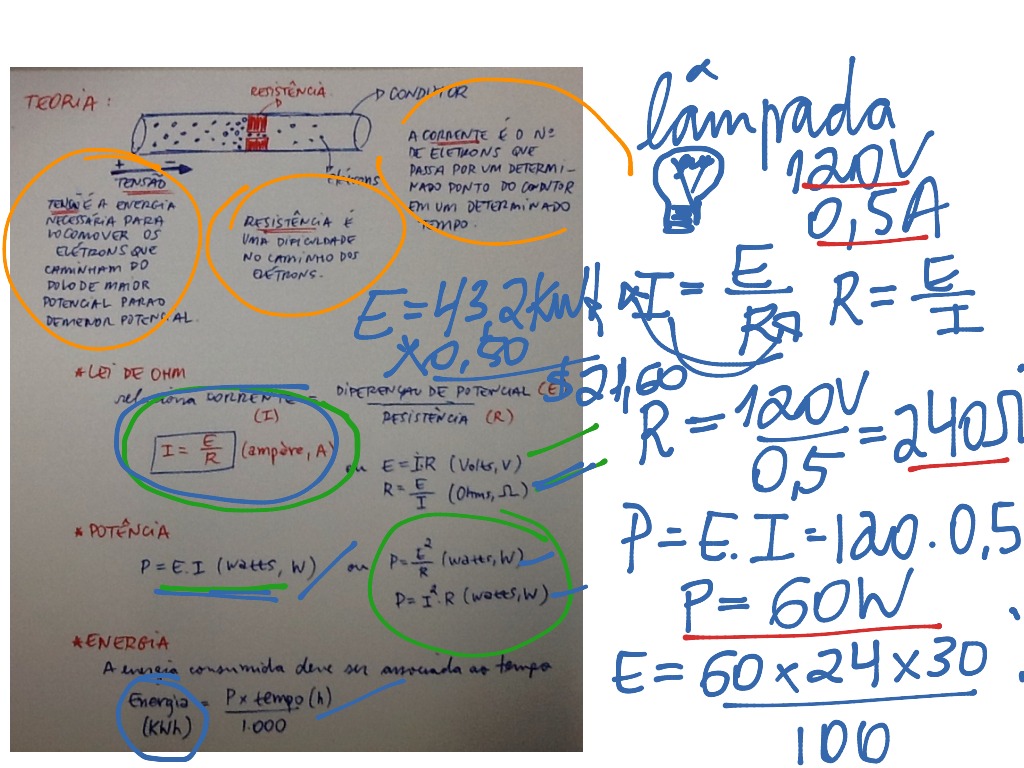 TEORIA:
RESISTÊNCIA
CONDUTOR
+ −
TENSÃO
elétrons
TENSÃO É A ENERGIA
NECESSÁRIA PARA
LOCOMOVER OS
ELÉTRONS QUE
CAMINHAM DO
POLO DE MAIOR
POTENCIAL PARA O
DE MENOR POTENCIAL.
RESISTÊNCIA É
UMA DIFICULDADE
NO CAMINHO DOS
ELÉTRONS.
A CORRENTE É O Nº
DE ELETRONS QUE
PASSA POR UM DETERMI-
NADO PONTO DO CONDUTOR
EM UM DETERMINADO
TEMPO.
* LEI DE OHM
relaciona CORRENTE = DIFERENÇA DE POTENCIAL (E)
(I) RESISTÊNCIA (R)
I = E/R (ampère, A)
ou E = I.R (Volts, V)
R = E/I (Ohms, Ω)
* POTÊNCIA
P = E.I (watts, W) ou P = E²/R (watts, W)
P = I².R (watts, W)
* ENERGIA
A energia consumida deve ser associada ao tempo
Energia = P x tempo (h)
(KWh) 1.000
lâmpada
120V
0,5A
I = E/R R = E/I
E = 43,2 kWh
x 0,50
$21,60
R = 120V/0,5 = 240Ω
P = E.I = 120.0,5
P = 60W
E = 60 x 24 x 30
100